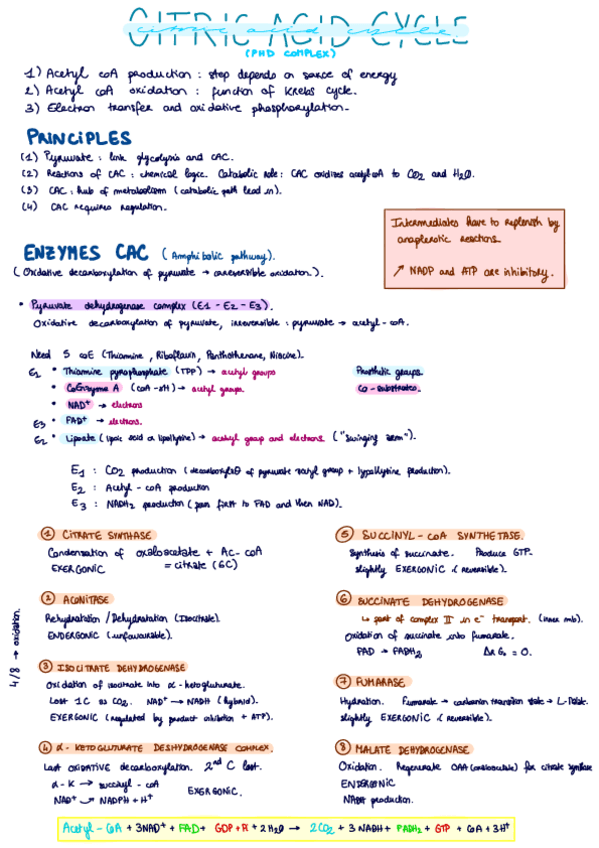 CITRIC ACID CYCLE
citric acid cycle
(PHD COMPLEX)
1) Acetyl coA production : step depends on source of energy
2) Acetyl coA oxidation : function of Krebs cycle.
3) Electron transfer and oxidative phosphorylation.
PRINCIPLES
(1) Pyruvate : link glycolysis and CAC.
(2) Reactions of CAC : chemical logic. Catabolic role: CAC oxidizes acetyl coA to CO2 and H2O.
(3) CAC : hub of metabolism (catabolic path lead in).
(4) CAC requires regulation.
Intermediates have to replenish by
anaplerotic reactions.
↗ NADP and ATP are inhibitory.
ENZYMES CAC (Amphibolic pathway).
(Oxidative decarboxylation of pyruvate → irreversible oxidation.).
• Pyruvate dehydrogenase complex (E1 - E2 - E3).
Oxidative decarboxylation of pyruvate, irreversible : pyruvate → acetyl-coA.
Need 5 coE (Thiamine, Riboflavin, Panthothenane, Niacine).
E1 • Thiamine pyrophosphate (TPP) → acetyl groups
Prosthetic groups.
• CoEnzyme A (coA-SH) → acetyl groups.
CO-substrates.
• NAD+ → electrons
E3 • FAD+ → electrons.
E2 • Lipoate (lipoic acid or lipollysine) → acetyl group and electrons ("swinging arm").
E1 : CO2 production (decarboxyl of pyruvate group + lypollysine production).
E2 : Acetyl-coA production
E3 : NADH2 production (pass first to FAD and then NAD).
① CITRATE SYNTHASE
Condensation of oxaloacetate + Ac-coA
EXERGONIC = citrate (6C)
② ACONITASE
Rehydratation / Dehydratation (Isocitrate).
ENDERGONIC (unfavourable).
4/8 → oxidation.
③ ISOCITRATE DEHYDROGENASE
Oxidation of isocitrate into α-ketogluturate.
Lost 1C as CO2. NAD+ → NADH (hybrid).
EXERGONIC (regulated by product inhibition + ATP).
④ α-KETOGLUTURATE DESHYDROGENASE COMPLEX.
Last OXIDATIVE decarboxylation. 2nd C lost.
α-K → succinyl-coA
NAD+ → NADPH + H+ EXERGONIC.
⑤ SUCCINYL-COA SYNTHETASE.
Synthesis of succinate. Produce GTP.
slightly EXERGONIC (reversible).
⑥ SUCCINATE DEHYDROGENASE
↳ part of complex II in e- transport. (inner mb).
Oxidation of succinate into fumarate.
FAD → FADH2 ΔrG0 = 0.
⑦ FUMARASE
Hydration. Fumarate → carbanion transition state → L-Malate.
slightly EXERGONIC (reversible).
⑧ MALATE DEHYDROGENASE
Oxidation. Regenerate OAA (oxaloacetate) for citrate synthase
ENDERGONIC
NADH production.
Acetyl-CoA + 3NAD+ + FAD + GDP + Pi + 2H2O → 2CO2 + 3NADH + FADH2 + GTP + CoA + 3H+